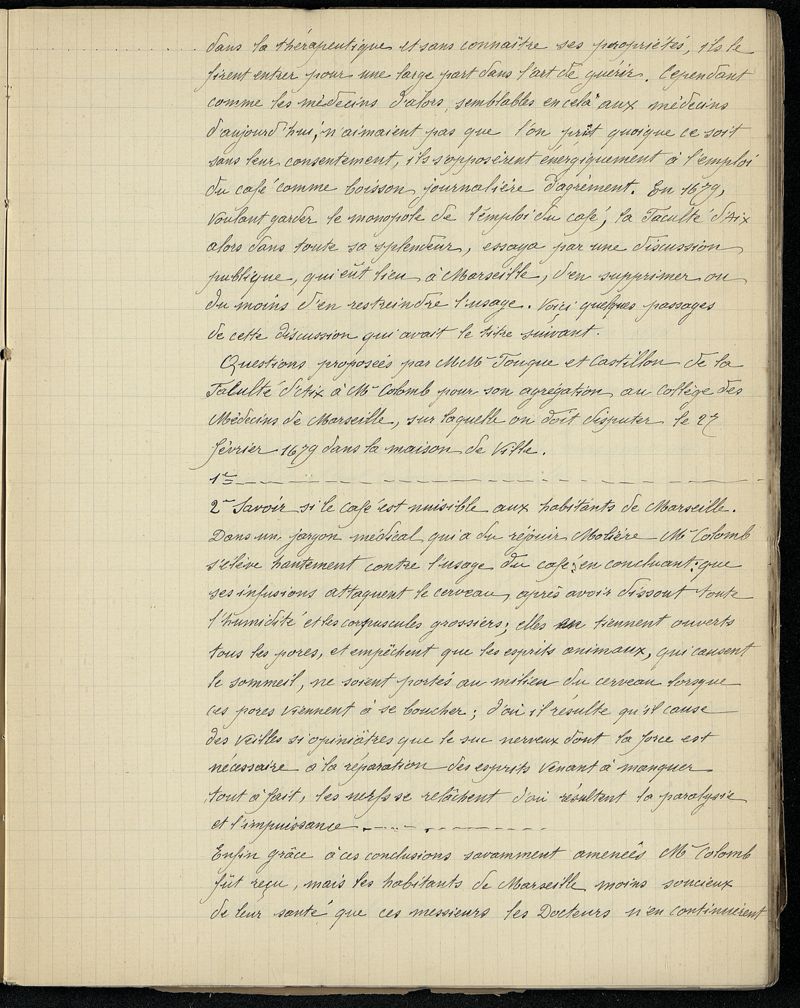 dans la thérapeutique et sans connaître ses propriétés, ils le
firent entrer pour une large part dans l'art de guérir. Cependant
comme les médecins d'alors, semblables en cela aux médecins
d'aujourd'hui, n'aimaient pas que l'on prît quoique ce soit
sans leur consentement, ils s'opposèrent énergiquement à l'emploi
du café comme boisson journalière d'agrément. En 1679,
voulant garder le monopole de l'emploi du café, la Faculté d'Aix
alors dans toute sa splendeur, essaya par une discussion
publique, qui eût lieu à Marseille, d'en supprimer ou
du moins d'en restreindre l'usage. Voici quelques passages
de cette discussion qui avait le titre suivant.
Questions proposées par MMrs Fouque et Castillon de la
Faculté d'Aix à Mr Colomb pour son agrégation au Collège des
Médecins de Marseille, sur laquelle on doit disputer le 27
février 1679 dans la maison de Ville.
1re
2me Savoir si le café est nuisible aux habitants de Marseille.
Dans un jargon médical qui a du réjouir Molière Mr Colomb
s'élève hautement contre l'usage du café; en concluant: que
ses infusions attaquent le cerveau, après avoir dissout toute
l'humidité et les corpuscules grossiers; elles tiennent ouverts
tous les pores, et empêchent que les esprits animaux, qui causent
le sommeil, ne soient portés au milieu du cerveau lorsque
ces pores viennent à se boucher; d'où il résulte qu'il cause
des veilles si opiniâtres que le suc nerveux dont la force est
nécessaire à la réparation des esprits venant à manquer
tout à fait, les nerfs se relâchent d'où résultent la paralysie
et l'impuissance
Enfin grâce à ces conclusions savamment amenées Mr Colomb
fût reçu, mais les habitants de Marseille moins soucieux
de leur santé que ces messieurs les Docteurs n'en continuèrent